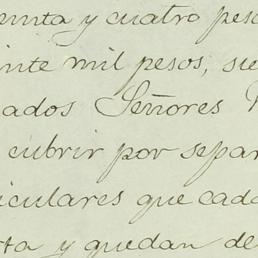 enta y cuatro pes
inte mil pesos, sie
ados Señores
cubrir por separ
iculares que cada
rta y quedan de